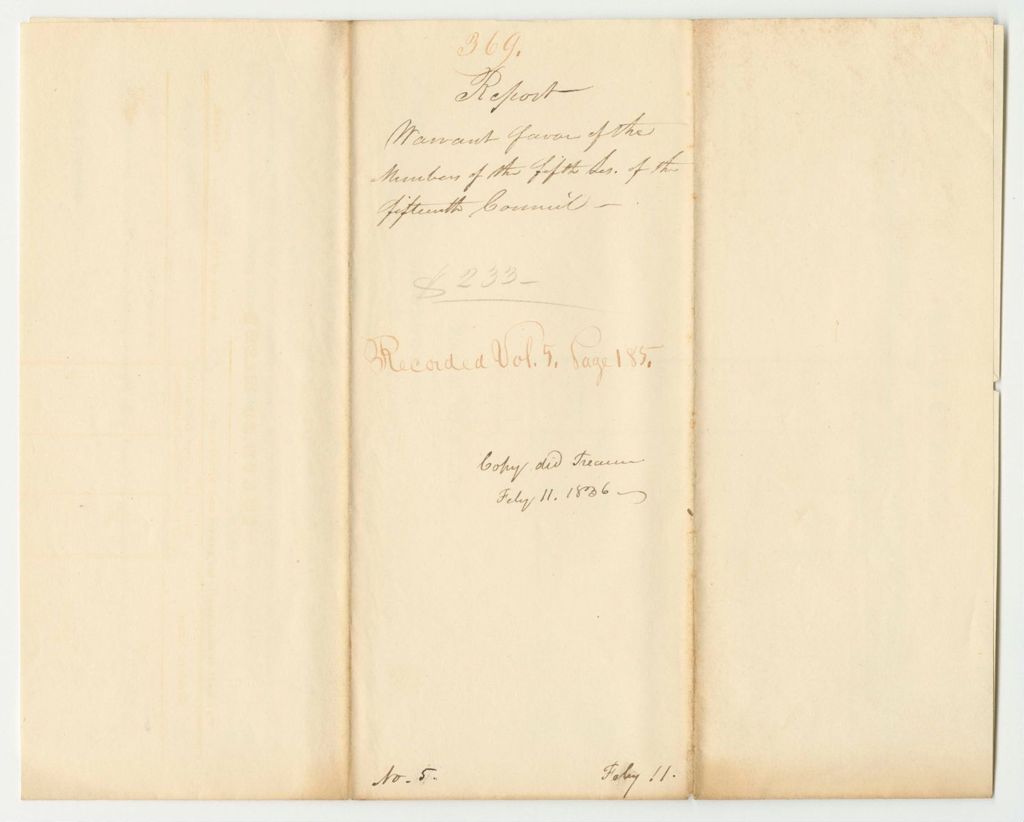 369.
Report
Warrant favor of the
Members of the fifth Ses. of the
fifteenth Council –
$233–
Recorded Vol. 5. Page 185.
Copy did Treasurer
Feby 11. 1836
No. 5.
Feby 11.